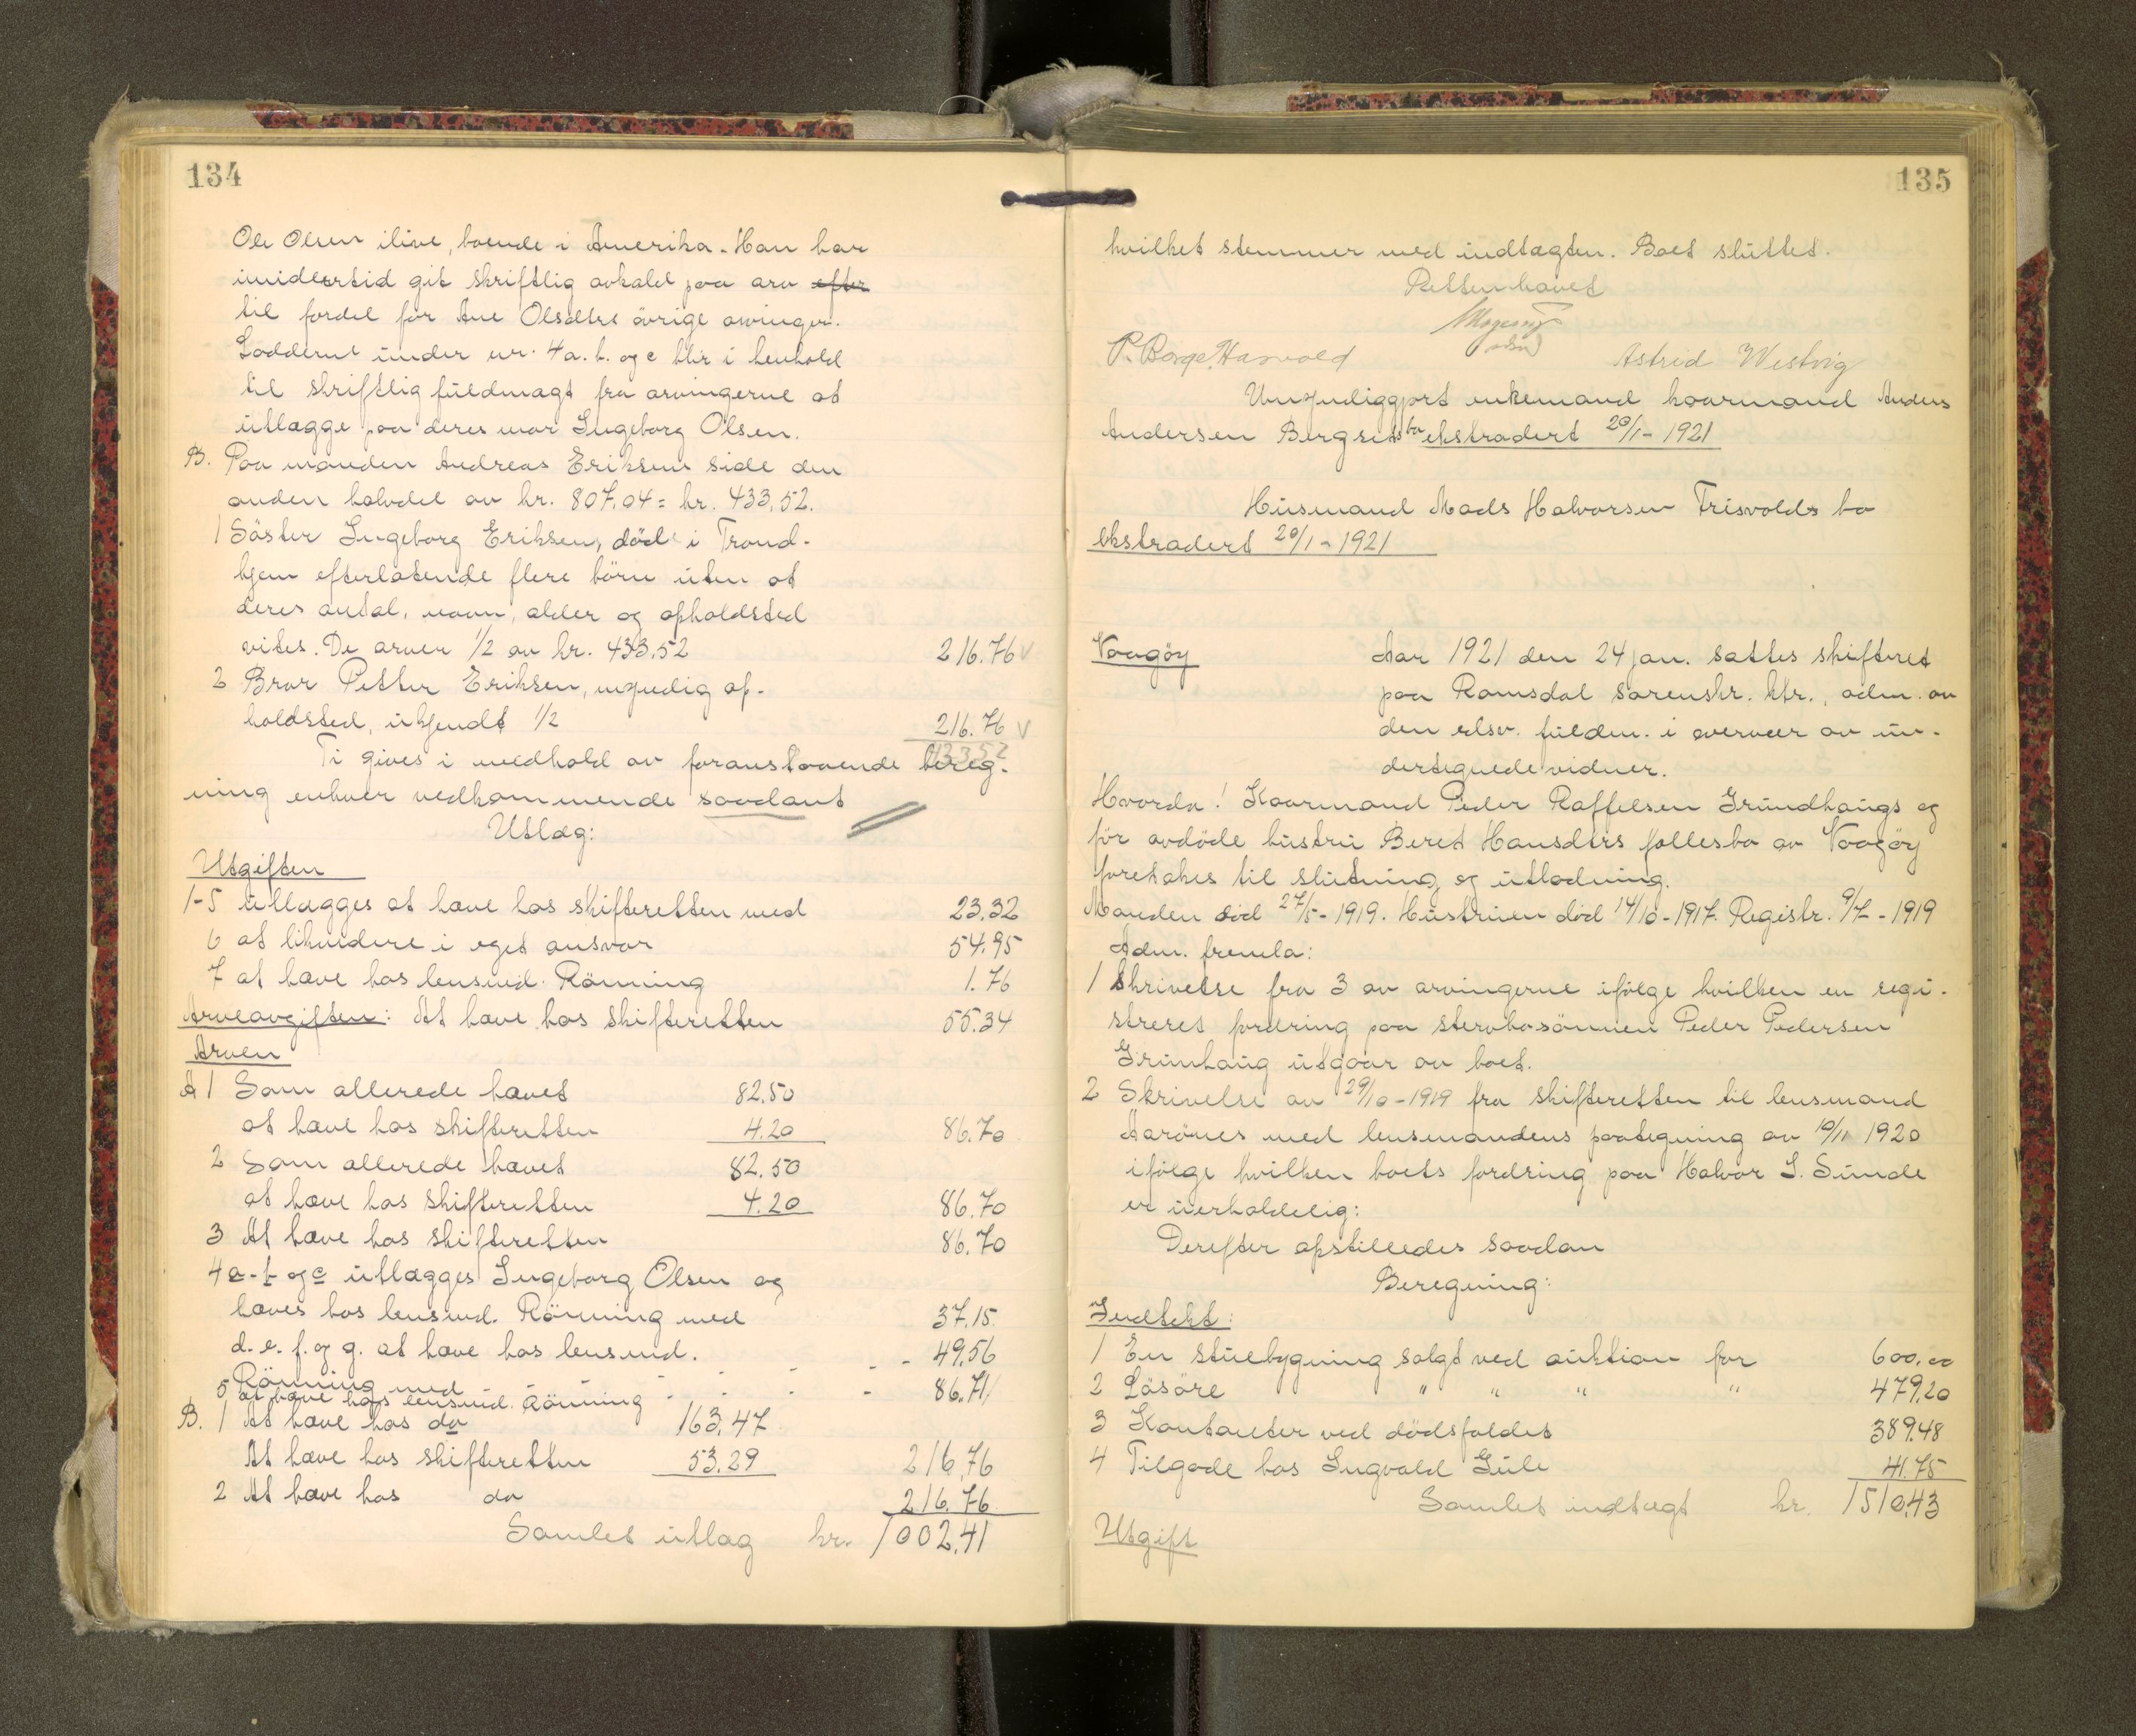 134
Ole Olsen ilive, boende i Amerika. Han har
imidlertid git skriftlig avkald paa arv efter
til fordel for Ane Olsdtrs övrige arvinger.
Lodderne under nr. 4a. b. og c blir i henhold
til skriftlig fuldmagt fra arvingerne at
utlægge paa deres mor Ingeborg Olsen.
B. Paa manden Andreas Eriksens side den
anden halvdel av kr. 807,04 = kr. 433,52.
1 Söster Ingeborg Eriksen, död i Trond-
hjem efterlatende flere börn uten at
deres antal, navn, alder og opholdsted
vites. De arver 1/2 av kr. 433,52 216.76 V
2 Bror Petter Eriksen, myndig op-
holdsted, ukjendt 1/2 216.76 V
433 52
Ti gives i medhold av foranstaaende bereg-
ning enhver vedkommende saadant
Utlæg:
Utgiften
1-5 utlægges at hæve hos skifteretten med 23.32
6 at likvidere i eget ansvar 54.95
7 at hæve hos lensmd. Rönning 1.76
Arveavgiften: At hæve hos skifteretten 55.34
Arven
A 1 Som allerede hævet 82.50
at hæve hos skifteretten 4.20 86.70
2 Som allerede hævet 82.50
at hæve hos skifteretten 4.20 86.70
3 At hæve hos skifteretten 86.70
4 a-b og c utlægges Ingeborg Olsen og
hæves hos lensmd. Rönning med 37.15
d. e. f. og g. at hæve hos lensmd.
Rönning med - - - - - 49.56
5 at hæve hos lensmd. Rönning - - - 86.71
B. 1 At hæve hos do 163.47
At hæve hos skifteretten 53.29 216.76
2 At hæve hos do 216.76
Samlet utlæg kr. 1002.41
135
hvilket stemmer med indtægten. Boet sluttet.
Retten hævet
P. Borge Harvold Astrid Westvig
Umyndiggjort enkemand kaarmand Anders
Andersen Bergsets bo ekstradert 20/1-1921
Husmand Mads Halvorsen Trisvolds bo
ekstradert 20/1-1921
Vaagöy
Aar 1921 den 24 jan. sattes skifteret
paa Romsdal sorenskr. ktr., adm. av
den edsv. fuldm. i overvær av un-
dertegnede vidner.
Hvorda! Kaarmand Peder Raffelsen Grundhaugs og
för avdöde hustru Beret Hansdtrs fællesbo av Vaagöy
foretakes til slutning og utlodning.
Manden död 27/5-1919. Hustruen död 14/10-1917. Registr. 9/7-1919
Adm. fremla:
1 Skrivelse fra 3 av arvingerne ifölge hvilken en regi-
streret fordring paa stervbosönnen Peder Pedersen
Grunhaug utgaar av boet.
2 Skrivelse av 29/10-1919 fra skifteretten til lensmand
Aarönes med lensmandens paategning av 10/11 1920
ifölge hvilken boets fordring paa Halvor I. Sunde
er uerholdelig:
Derefter opstilledes saadan
Beregning:
Indtekt:
1 En stuebygning solgt ved auktion for 600,00
2 Lösöre " " " " 479,20
3 Kontanter ved dödsfaldet 389.48
4 Tilgode hos Ingvald Gule 41.75
Samlet indtægt kr. 1510,43
Utgift